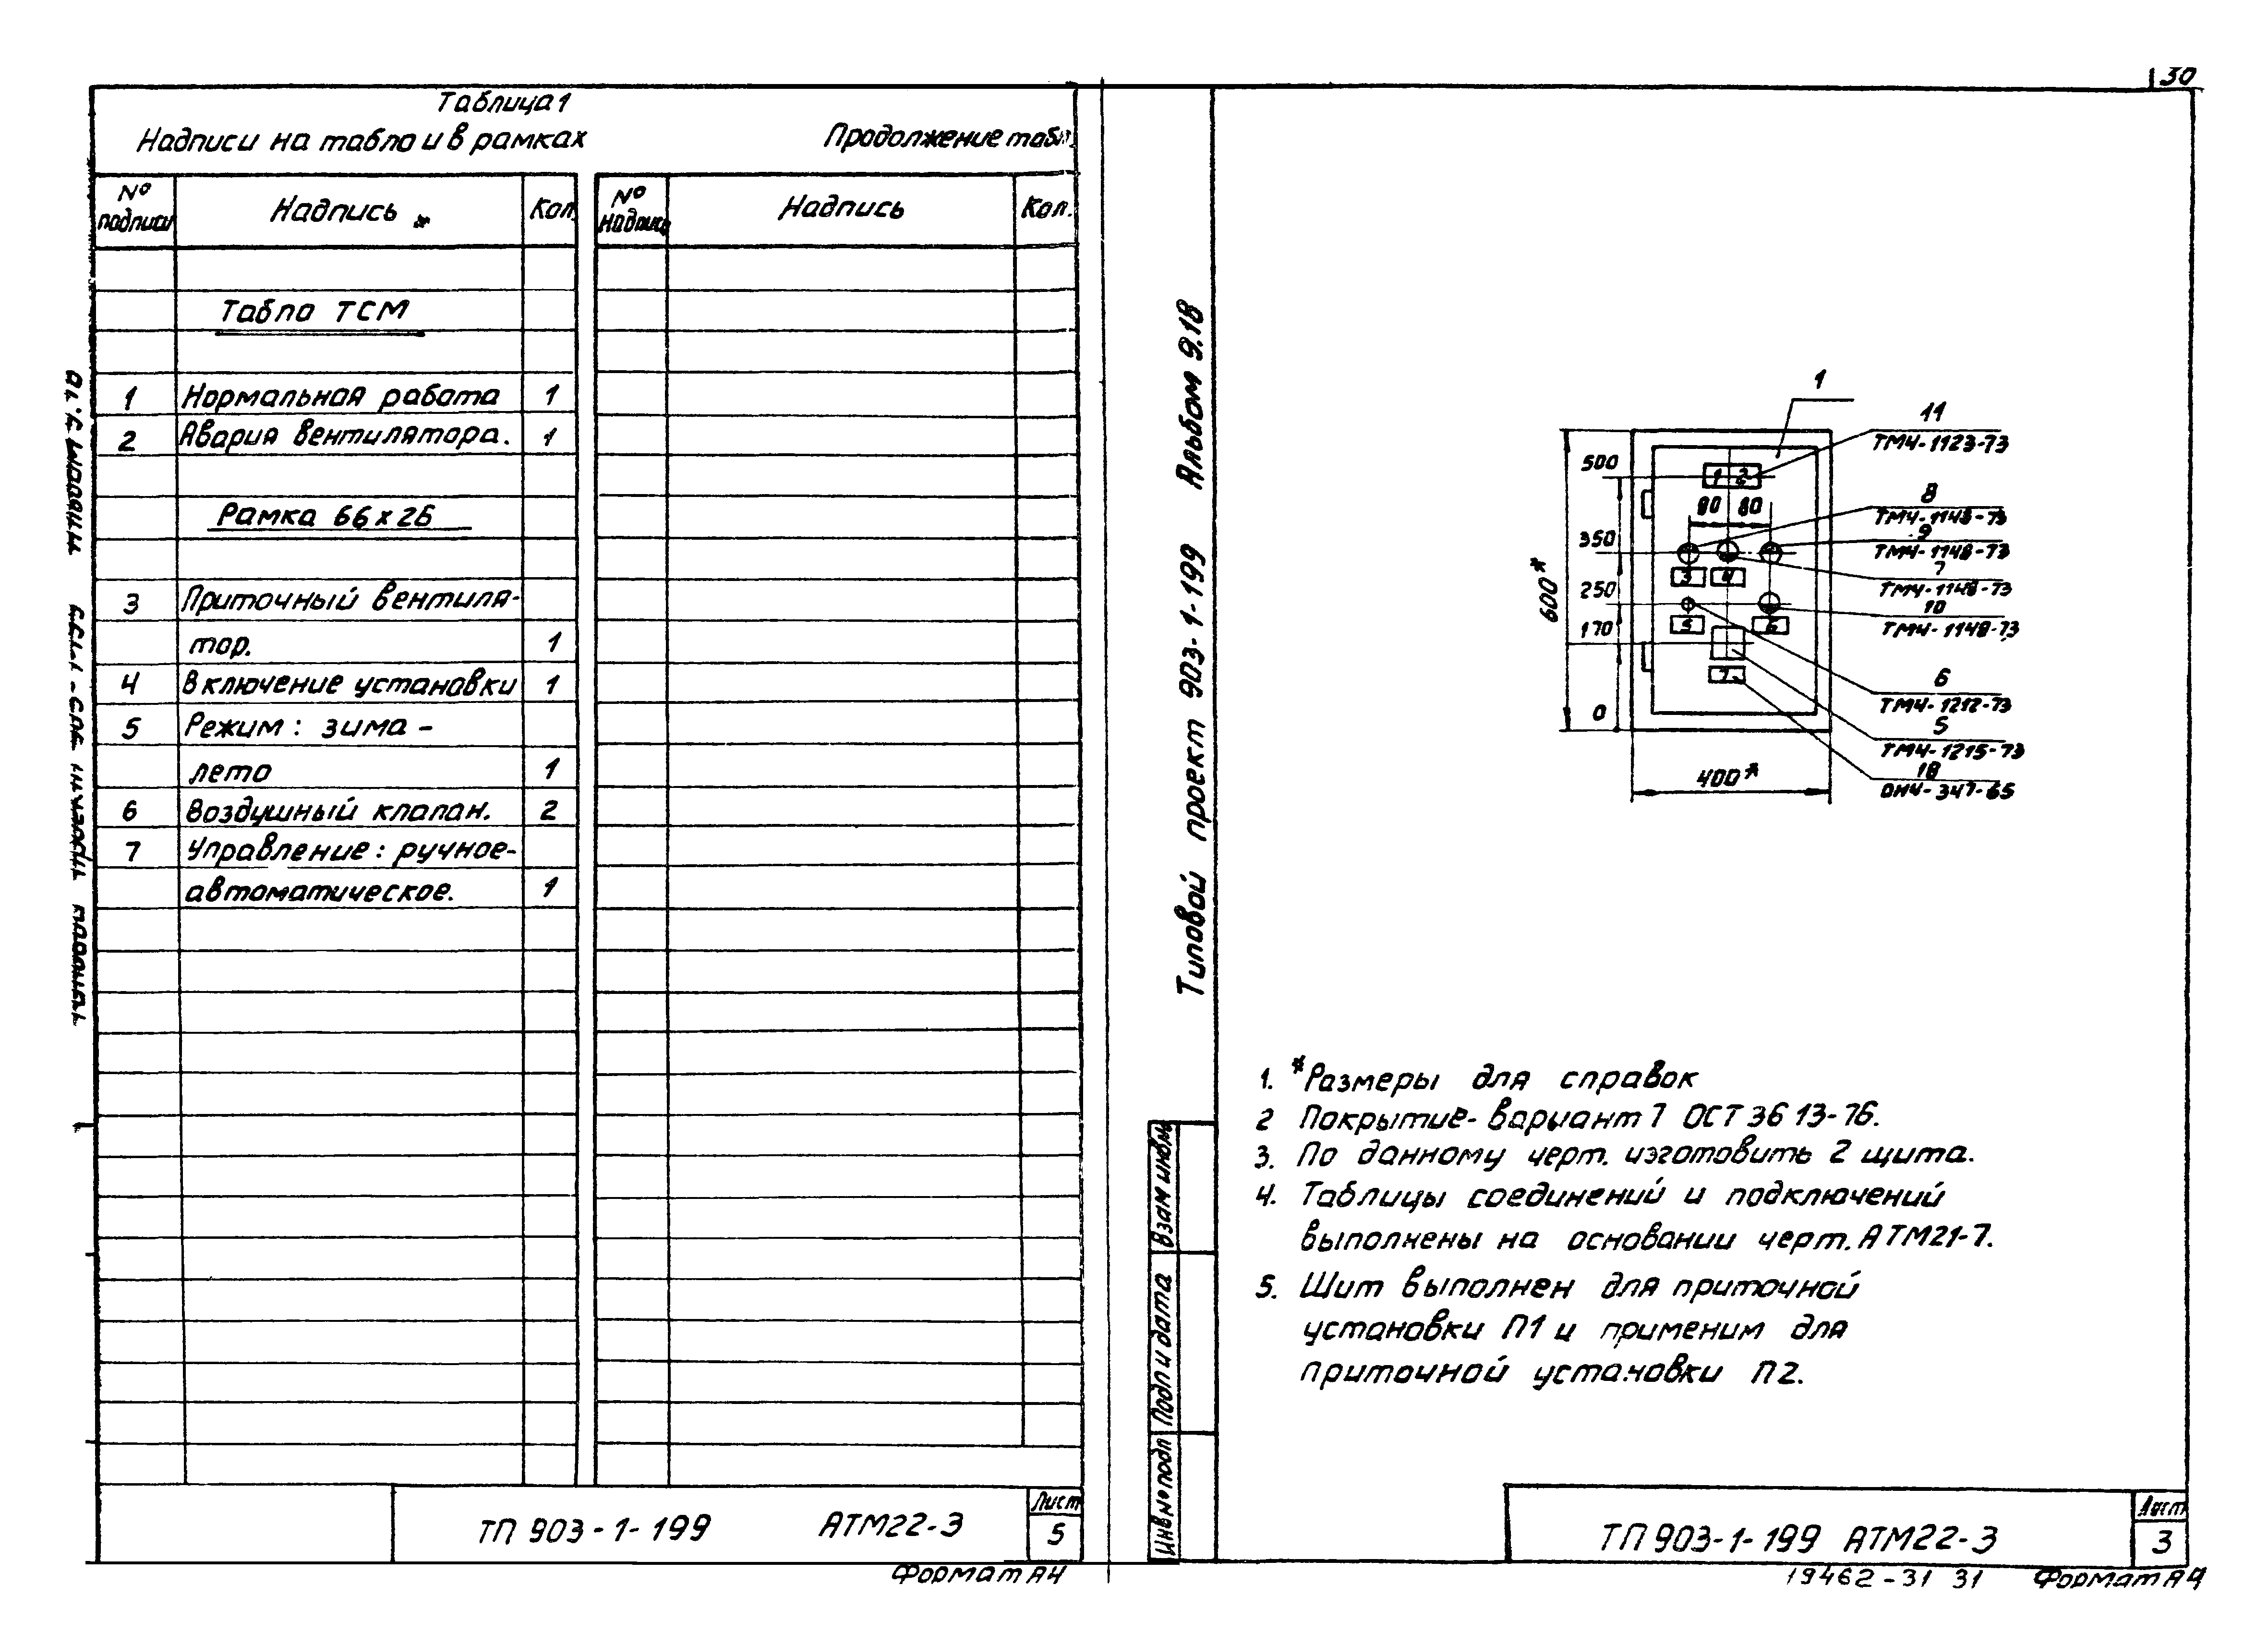 30
Таблица 1
Надписи на табло и в рамках
Продолжение табл
№ подписи Надпись Кол.
Табло ТСМ
1 Нормальная работа 1
2 Авария вентилятора. 1
Рамка 66х26
3 Приточный вентиля-
тор. 1
4 Включение установки 1
5 Режим: зима -
лето 1
6 Воздушный клапан. 2
7 Управление: ручное-
автоматическое. 1
№ надписи Надпись Кол.
ТП 903-1-199 АТМ22-3
Лист
5
Формат А4
Типовой проект 903-1-199 Альбом 9.18
Взам инв№
Подп и дата
Инв № подп
1
11
ТМ4-1123-73
8
ТМ4-1148-73
9
ТМ4-1148-73
7
ТМ4-1148-73
10
ТМ4-1148-73
6
ТМ4-1212-73
5
ТМ4-1215-73
18
ОН4-347-65
500
350
250
170
0
600*
400*
80 80
1 2
3 4
5 6
7
1. *Размеры для справок
2 Покрытие-вариант 7 ОСТ 36 13-76.
3. По данному черт. изготовить 2 щита.
4. Таблицы соединений и подключений
выполнены на основании черт. АТМ21-7.
5. Щит выполнен для приточной
установки П1 и применим для
приточной установки П2.
ТП 903-1-199 АТМ22-3
Лист
3
19462-31 31 Формат А4